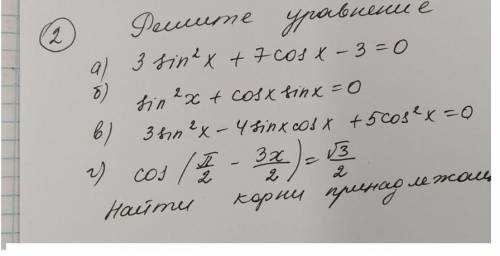 2 Решите уравнение
а) 3 sin²x + 7cosx − 3 = 0
б) sin²x + cosx sinx = 0
в) 3sin²x − 4sinxcosx + 5cos²x = 0
г) cos(π/2 − 3x/2) = √3/2
Найти корни принадлежащ